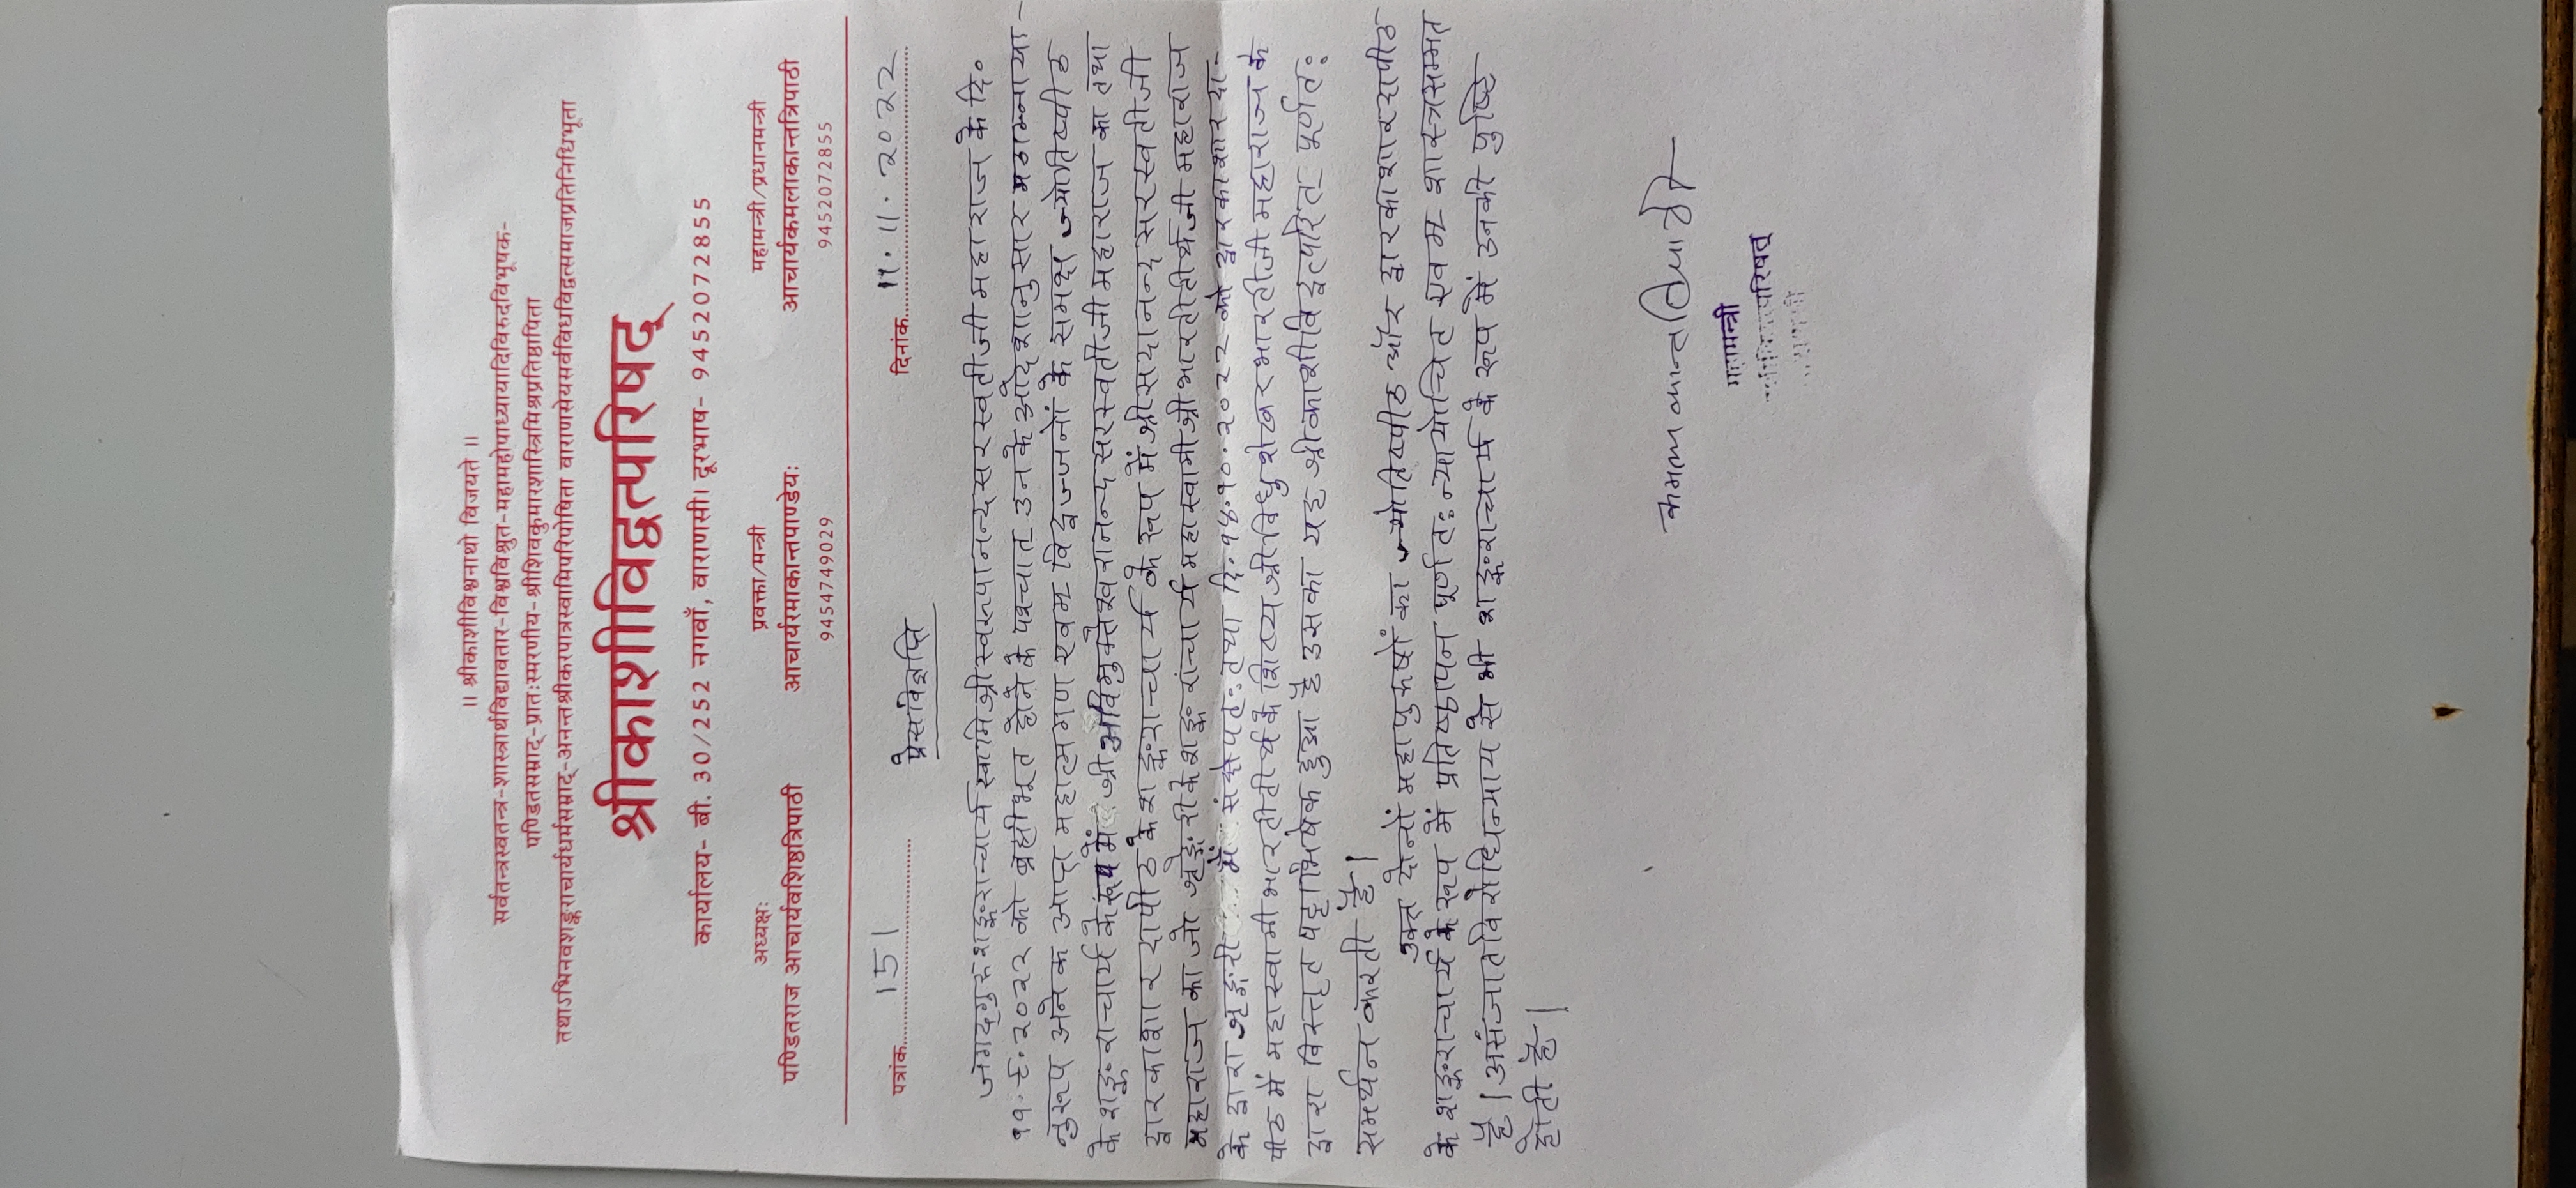 ॥ श्रीकाशीविश्वनाथो विजयते ॥
सर्वतन्त्रस्वतन्त्र-शास्त्रार्थविद्यावतार-विश्वविश्रुत-महामहोपाध्यायादिविरुदविभूषक-
पण्डितसम्राट्-प्रातःस्मरणीय-श्रीशिवकुमारशास्त्रिमिश्रप्रतिष्ठापिता
तथाऽभिनवशङ्कराचार्यधर्मसम्राट्-अनन्तश्रीकरपात्रस्वामिपरिपोषिता वाराणसेयसर्वविधविद्वत्समाजप्रतिनिधिभूता
श्रीकाशीविद्वत्परिषद्
कार्यालय- बी. 30/252 नगवाँ, वाराणसी। दूरभाष- 9452072855
अध्यक्षः प्रवक्ता/मन्त्री महामन्त्री/प्रधानमन्त्री
पण्डितराज आचार्यवशिष्ठत्रिपाठी आचार्यरमाकान्तपाण्डेयः आचार्यकमलाकान्तत्रिपाठी
9454749029 9452072855
पत्रांक 151 दिनांक 11.11.२०२२
प्रेसविज्ञप्ति
जगद्गुरु शङ्कराचार्य स्वामिश्रीस्वरूपानन्दसरस्वतीजी महाराज के दि॰
११.९.२०२२ को ब्रह्मीभूत होने के पश्चात् उनके आदेशानुसार मठाम्नाया-
नुरूप अनेक आप्त महात्मगण एवम् विद्वज्जनों के समक्ष ज्योतिष्पीठ
के शङ्कराचार्य के रूप में श्री अविमुक्तेश्वरानन्दसरस्वतीजी महाराज का तथा
द्वारकाशारदापीठ के शङ्कराचार्य के रूप में श्रीसदानन्दसरस्वतीजी
महाराज का जो श्रृङ्गेरी के शङ्करांचार्य महास्वामीश्रीभारतीतीर्थजी महाराज
के द्वारा श्रृङ्गेरी में संक्षेपतः तथा दि.१५.१०.२०२२ को द्वारकाशारदा-
पीठ में महास्वामीभारतीतीर्थ के शिष्य श्रीविधुशेखरभारतीजी महाराज के
द्वारा विस्तृत पट्टाभिषेक हुआ है उसका यह श्रीकाशीविद्वत्परिषत् पूर्णतः
समर्थन करती है।
उक्त दोनों महापुरुषों का ज्योतिष्पीठ और द्वारकाशारदापीठ
के शङ्कराचार्य के रूप में प्रतिष्ठापन पूर्णतः न्यायोचित एवम् शास्त्रसम्मत
है। असंजातविरोधिन्याय से भी शङ्कराचार्य के रूप में उनकी पुष्टि
होती है।
कमलाकान्तत्रिपाठी
महामन्त्री
परिषत्